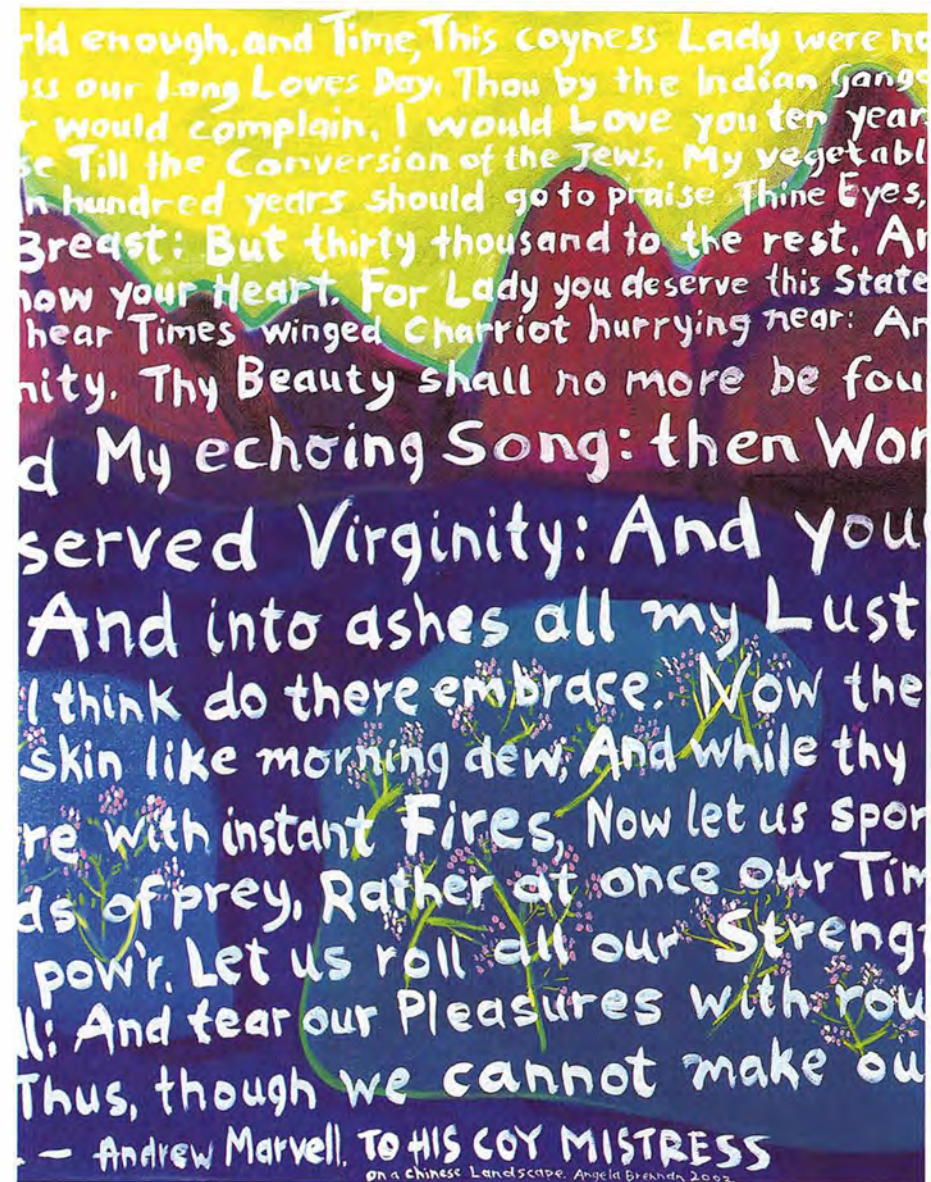 rld enough, and Time, This coyness Lady were no
ss our Long Loves Day. Thou by the Indian Gange
r would complain. I would Love you ten year
se Till the Conversion of the Jews. My vegetabl
n hundred years should go to praise Thine Eyes,
Breast: But thirty thousand to the rest. An
how your Heart. For Lady you deserve this State
hear Times winged Charriot hurrying near: An
nity. Thy Beauty shall no more be fou
d My echoing Song: then Wor
served Virginity: And you
And into ashes all my Lust
I think do there embrace. Now the
skin like morning dew, And while thy
re with instant Fires, Now let us spor
ds of prey, Rather at once our Tim
pow'r. Let us roll all our Streng
ll: And tear our Pleasures with rou
Thus, though we cannot make ou
. — Andrew Marvell. TO HIS COY MISTRESS
on a Chinese Landscape. Angela Brennan 2002